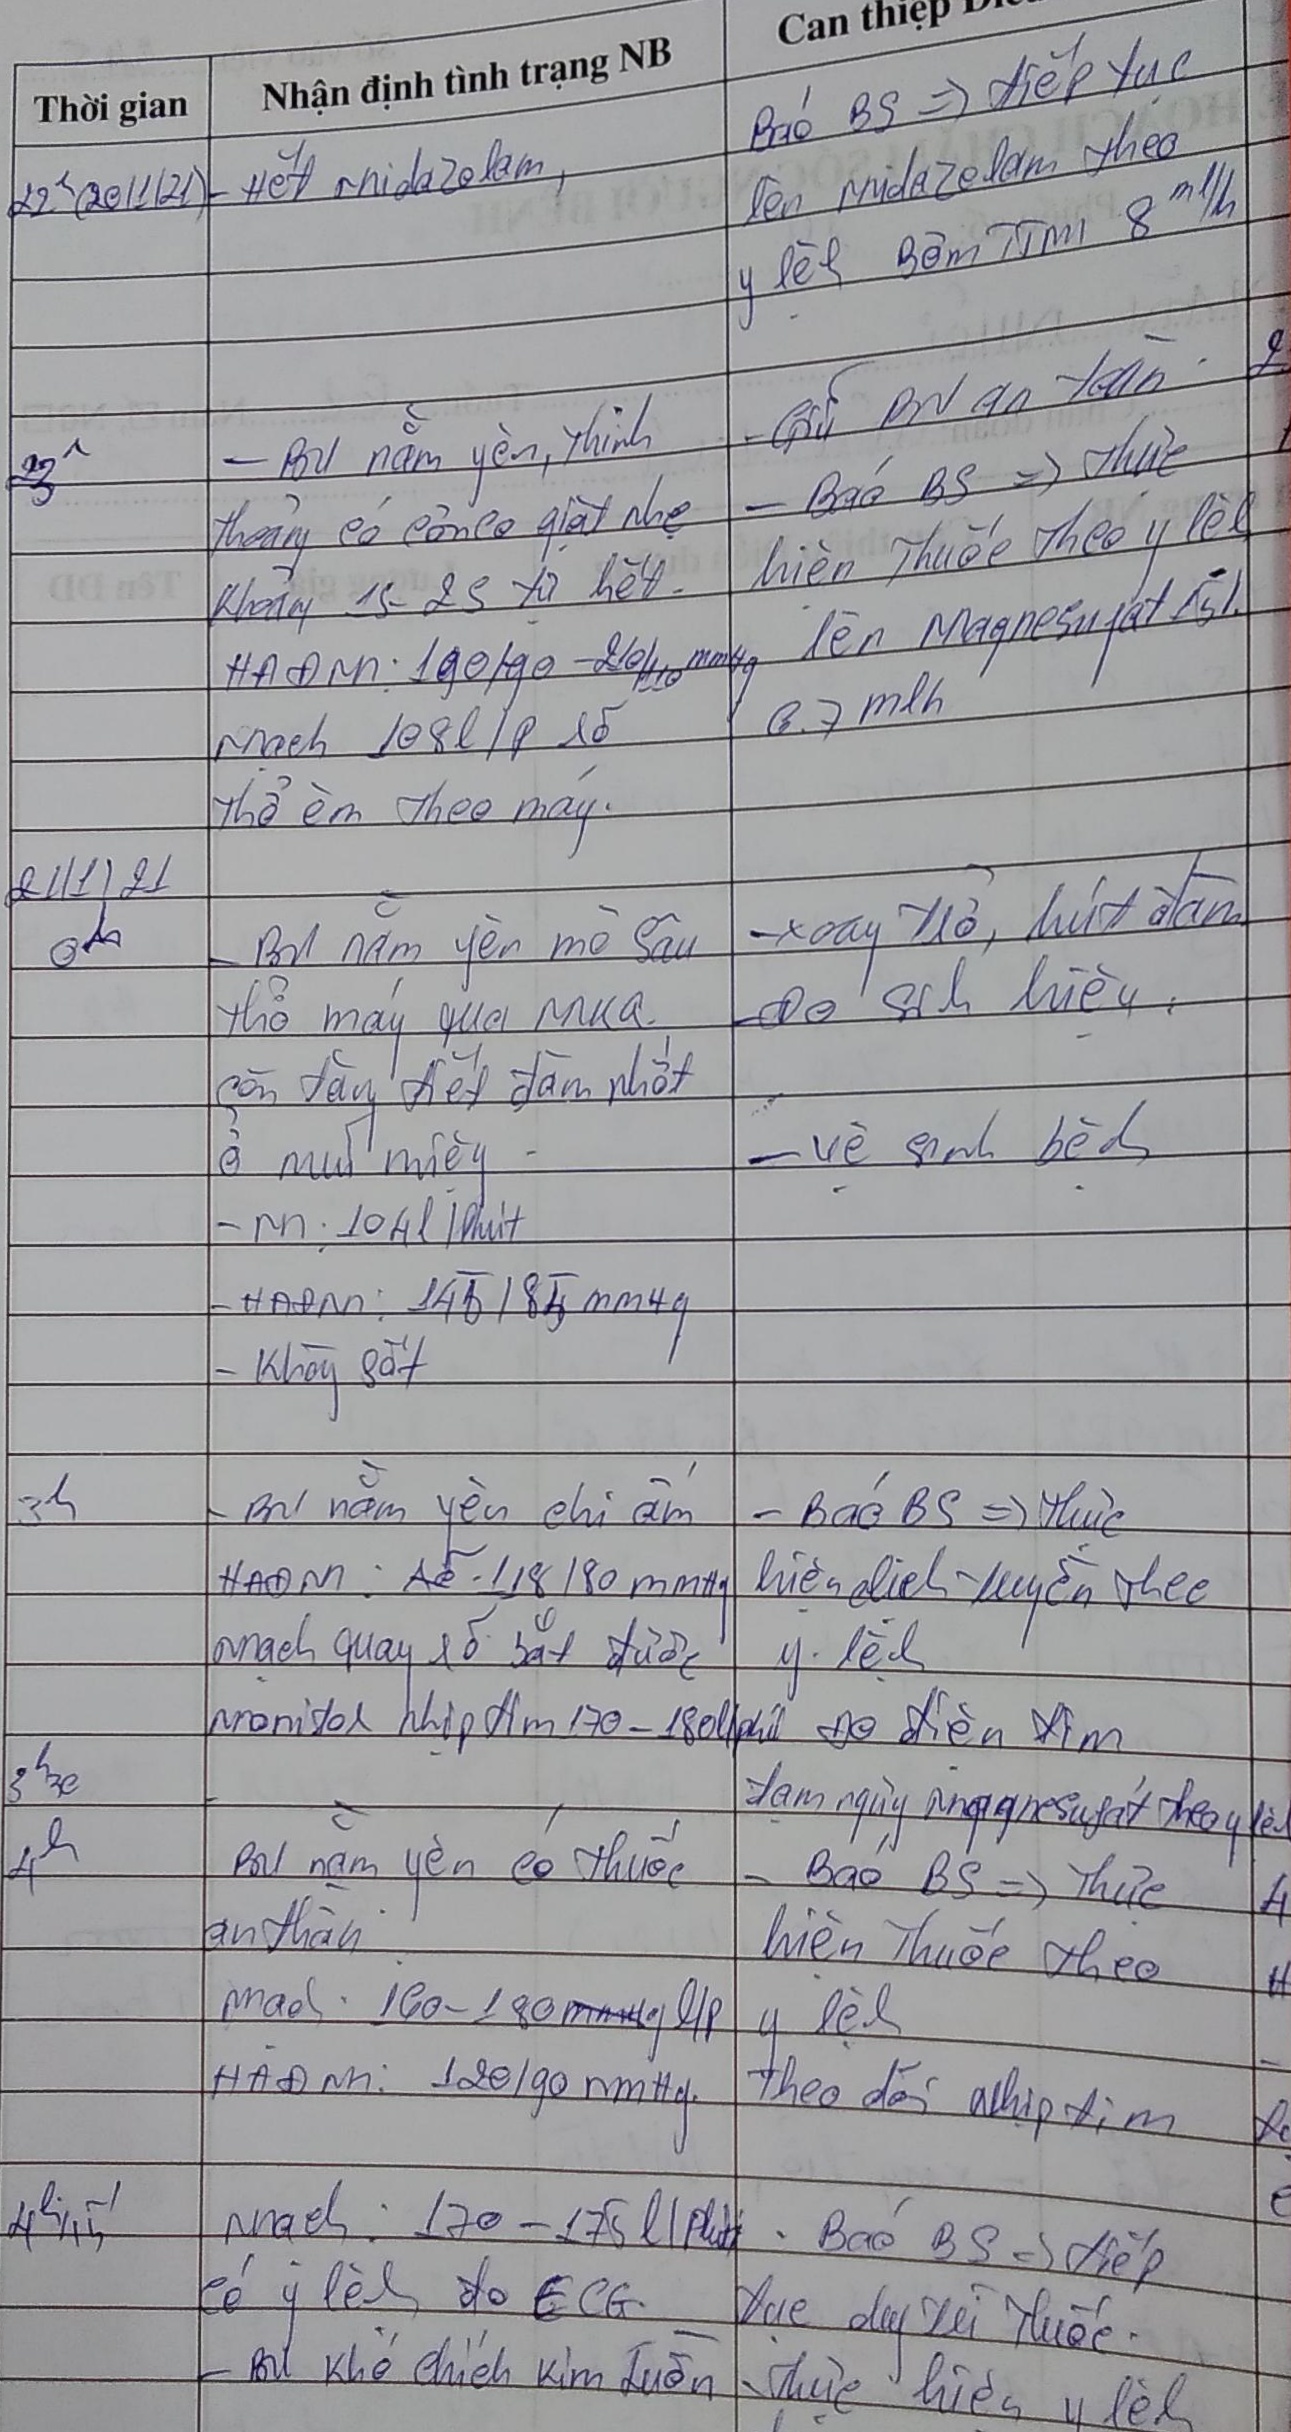 Thời gian
Nhận định tình trạng NB
Can thiệp
22h (20/1/21)
- Hết midazolam,
Báo BS => tiếp tục
lên midazolam theo
y lệnh Bơm TTM 8 ml/h
23h
- BN nằm yên, thỉnh
thoảng có cơn co giật nhẹ
khoảng 15-25 tự hết.
HAĐM: 190/90 - 210/110 mmHg
Mạch 108 l/p rõ
thở êm theo máy.
- Giữ BN an toàn.
- Báo BS => thực
hiện thuốc theo y lệnh
lên Magnesufat 15%
6.7 ml/h
21/1/21
0h
- BN nằm yên mê sâu
thở máy qua MKQ.
còn tăng tiết đàm nhớt
ở mũi miệng -
- M: 104 l/phút
- HAĐM: 145/85 mmHg
- Không sốt
- xoay trở, hút đàm
- Đo sinh hiệu.
- vệ sinh bệnh
3h
- BN nằm yên chi ấm
HAĐM: 118/80 mmHg
Mạch quay rõ bắt được
monitor nhịp tim 170-180l/phút
- Báo BS => thực
hiện dịch truyền theo
y lệnh
đo điện tim
3h30
-
tạm ngưng magnesufat theo y lệnh
4h
BN nằm yên có thuốc
an thần
Mạch: 160-180 mmHg l/p
HAĐM: 120/90 mmHg.
- Báo BS => thực
hiện thuốc theo
y lệnh
theo dõi nhịp tim
4h45'
Mạch: 170-175 l/phút
có y lệnh đo ECG.
- BN khó chích kim luồn
- Báo BS => tiếp
tục duy trì thuốc.
- thực hiện y lệnh